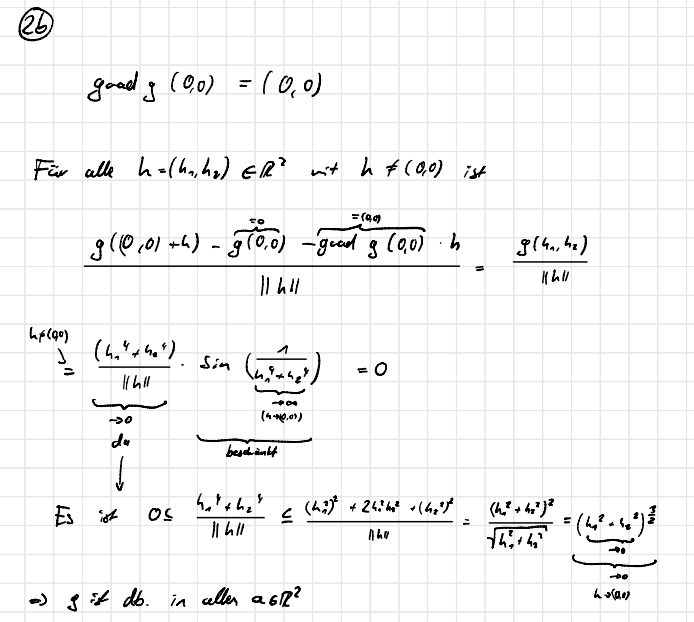 2b
grad g (0,0) = (0,0)
Für alle h=(h₁,h₂) ∈ ℝ² mit h ≠ (0,0) ist
\frac{g((0,0)+h) - \overbrace{g(0,0)}^{=0} - \overbrace{grad g (0,0)}^{=(0,0)} · h}{||h||} = \frac{g(h₁,h₂)}{||h||}
\overset{h≠(0,0)}{=} \underbrace{\frac{(h₁⁴+h₂⁴)}{||h||}}_{→0} · \underbrace{Sin (\frac{1}{\underbrace{h₁⁴+h₂⁴}_{→0 (h→(0,0))}})}_{beschränkt} = 0
da
↓
Es ist 0 ≤ \frac{h₁⁴+h₂⁴}{||h||} ≤ \frac{(h₁²)² + 2h₁²h₂² + (h₂²)²}{||h||} = \frac{(h₁²+h₂²)²}{\sqrt{h₁²+h₂²}} = \underbrace{(\underbrace{h₁²+h₂²}_{→0})^{\frac{3}{2}}}_{→0 h→(0,0)}
⇒ g ist db. in allen a∈ℝ²